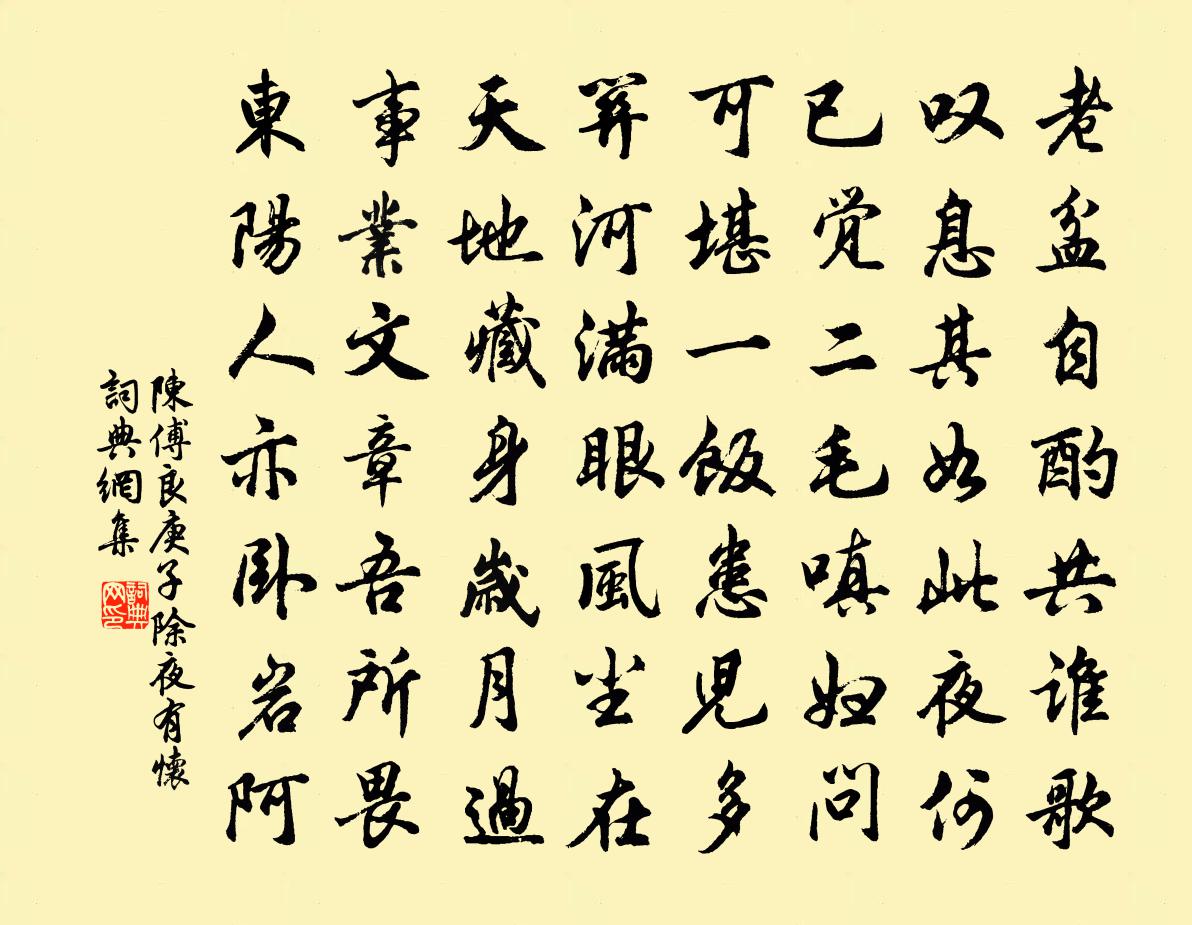 老盆自酌共谁歌
叹息其如此夜何
已觉二毛嗔妇问
可堪一飯患兒多
关河滿眼風尘在
天地藏身歲月過
事業文章吾所畏
東陽人亦卧岩阿
陳傅良庚子除夜有懷
詞典網集
詞典网印